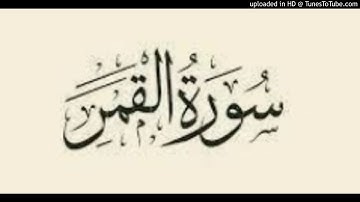 uploaded in HD @ TunesToTube.com
سُورَةُ القَمَرِ